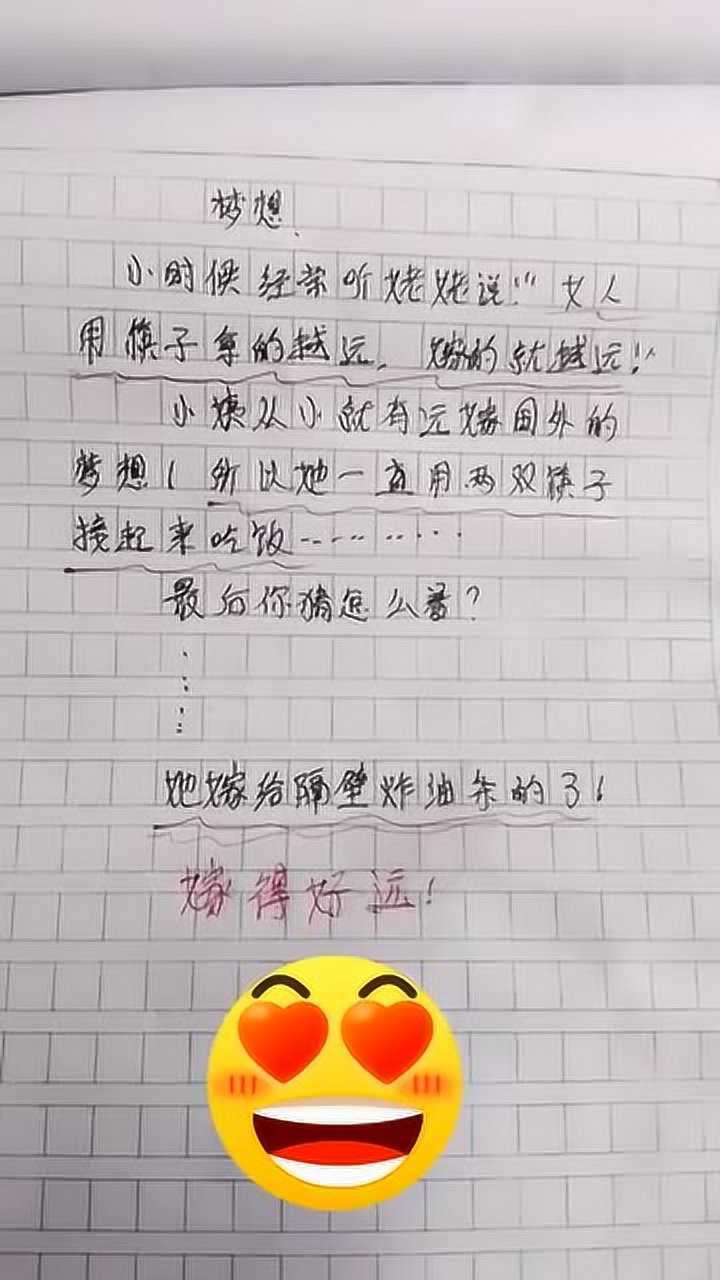 梦想
小时候经常听姥姥说!"女人
用筷子拿的越远,嫁的就越远!"
小姨从小就有远嫁国外的
梦想!所以她一直用两双筷子
接起来吃饭............
最后你猜怎么着?
......
她嫁给隔壁炸油条的了!
嫁得好远!